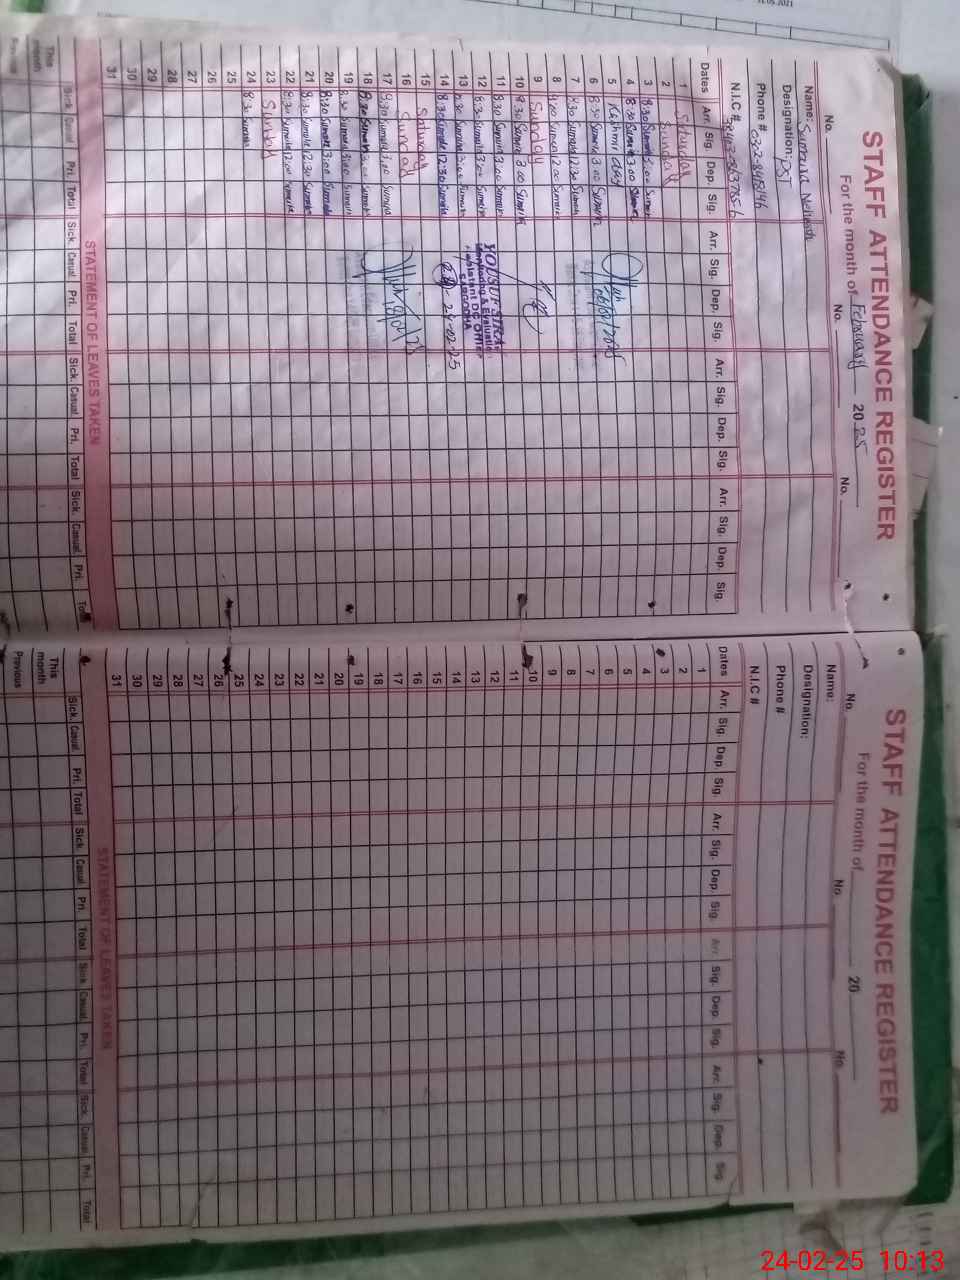 STAFF ATTENDANCE REGISTER
For the month of February 2025
No. No. No.
Name: Sumaira
Designation: PST
Phone #
N.I.C #
Dates Arr. Sig. Dep. Sig. Arr. Sig. Dep. Sig. Arr. Sig. Dep. Sig. Arr. Sig. Dep. Sig.
1 Saturday
2 Sunday
3 8:30 Sumaira 3:00 Sumaira
4 8:30 Sumaira 3:00 Sumaira
5 Kashmir day
6 8:30 Sumaira 3:00 Sumaira
7 8:30 Sumaira 12:30 Sumaira
8 9:00 Sumaira 12:00 Sumaira
9 Sunday
10 8:30 Sumaira 3:00 Sumaira
11 8:30 Sumaira 3:00 Sumaira
12 8:30 Sumaira 3:00 Sumaira
13 8:30 Sumaira 3:00 Sumaira
14 8:30 Sumaira 12:30 Sumaira
15 Saturday
16 Sunday
17 8:30 Sumaira 3:00 Sumaira
18 8:30 Sumaira 3:00 Sumaira
19 8:30 Sumaira 3:00 Sumaira
20 8:30 Sumaira 3:00 Sumaira
21 8:30 Sumaira 12:30 Sumaira
22 8:30 Sumaira 12:00 Sumaira
23 Sunday
24 8:30 Sumaira
25
26
27
28
29
30
31
06/02/2025
YOUSUF SIRAJ
Monitoring & Evaluation
Assistant DC Office
SARGODHA
24-02-25
18/02/25
STATEMENT OF LEAVES TAKEN
Sick. Casual Pri. Total Sick. Casual Pri. Total Sick. Casual Pri. Total Sick. Casual Pri. Total
This month
Previous
STAFF ATTENDANCE REGISTER
For the month of 20
No. No. No.
Name:
Designation:
Phone #
N.I.C #
Dates Arr. Sig. Dep. Sig. Arr. Sig. Dep. Sig. Arr. Sig. Dep. Sig. Arr. Sig. Dep. Sig.
1
2
3
4
5
6
7
8
9
10
11
12
13
14
15
16
17
18
19
20
21
22
23
24
25
26
27
28
29
30
31
STATEMENT OF LEAVES TAKEN
Sick. Casual Pri. Total Sick. Casual Pri. Total Sick. Casual Pri. Total Sick. Casual Pri. Total
This month
Previous
24-02-25 10:13